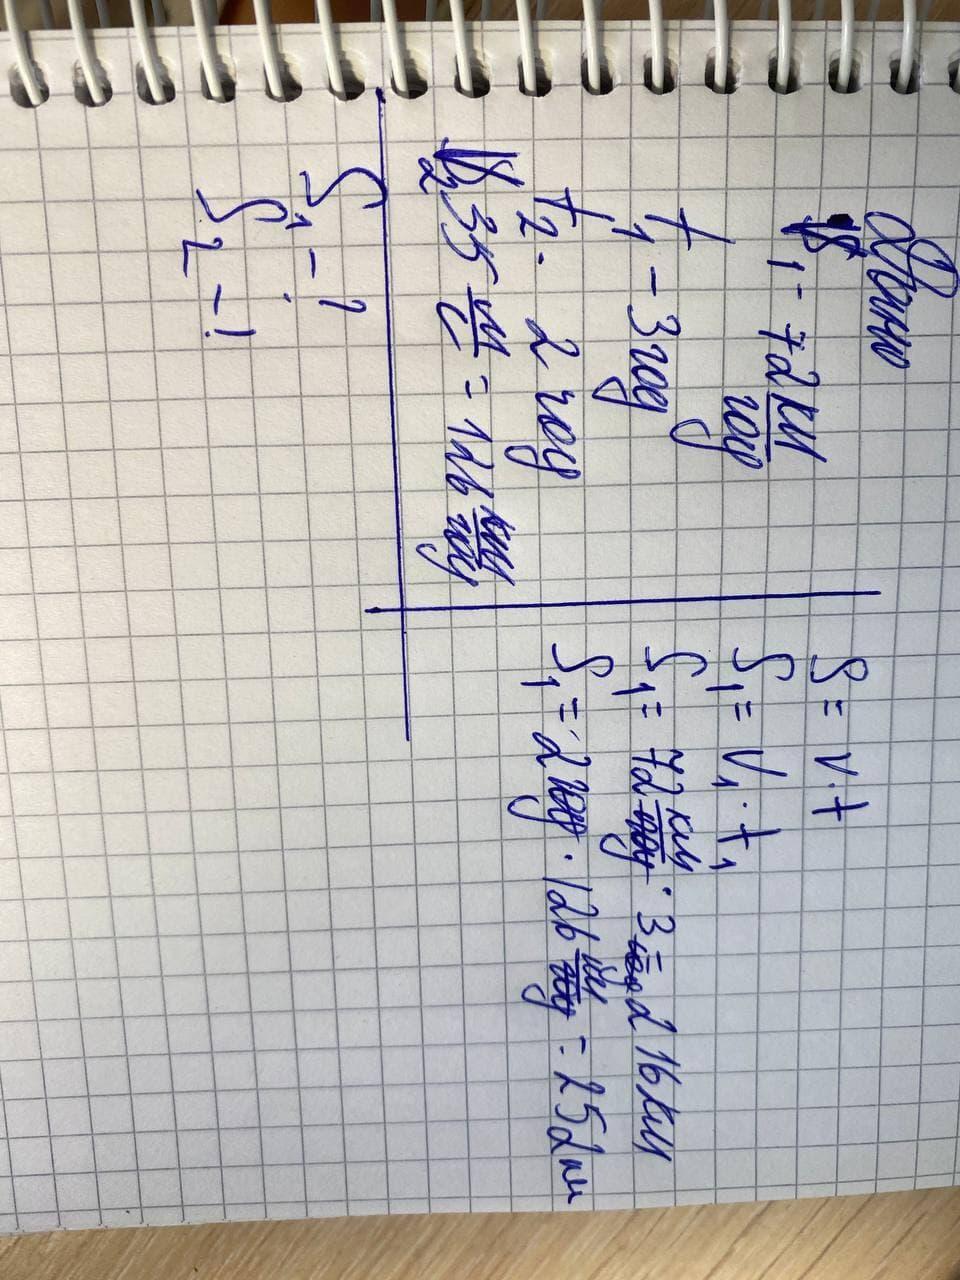 Дано
V₁ - 72 км/год
t₁ - 3 год
t₂ - 2 год
V₂ 35 м/с = 126 км/год
S₁ - ?
S₂ - ?
S = v · t
S₁ = V₁ · t₁
S₁ = 72 км/год · 3 = 216 км
S₁ = 2 год · 126 км/год = 252 км